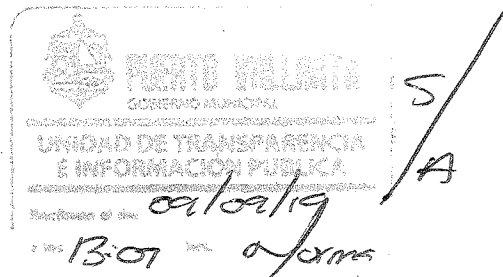 PUERTO VALLARTA
GOBIERNO MUNICIPAL
UNIDAD DE TRANSPARENCIA
E INFORMACIÓN PÚBLICA
Recibido el día 09/09/19
a las 13:07 hrs. Norma
S/A